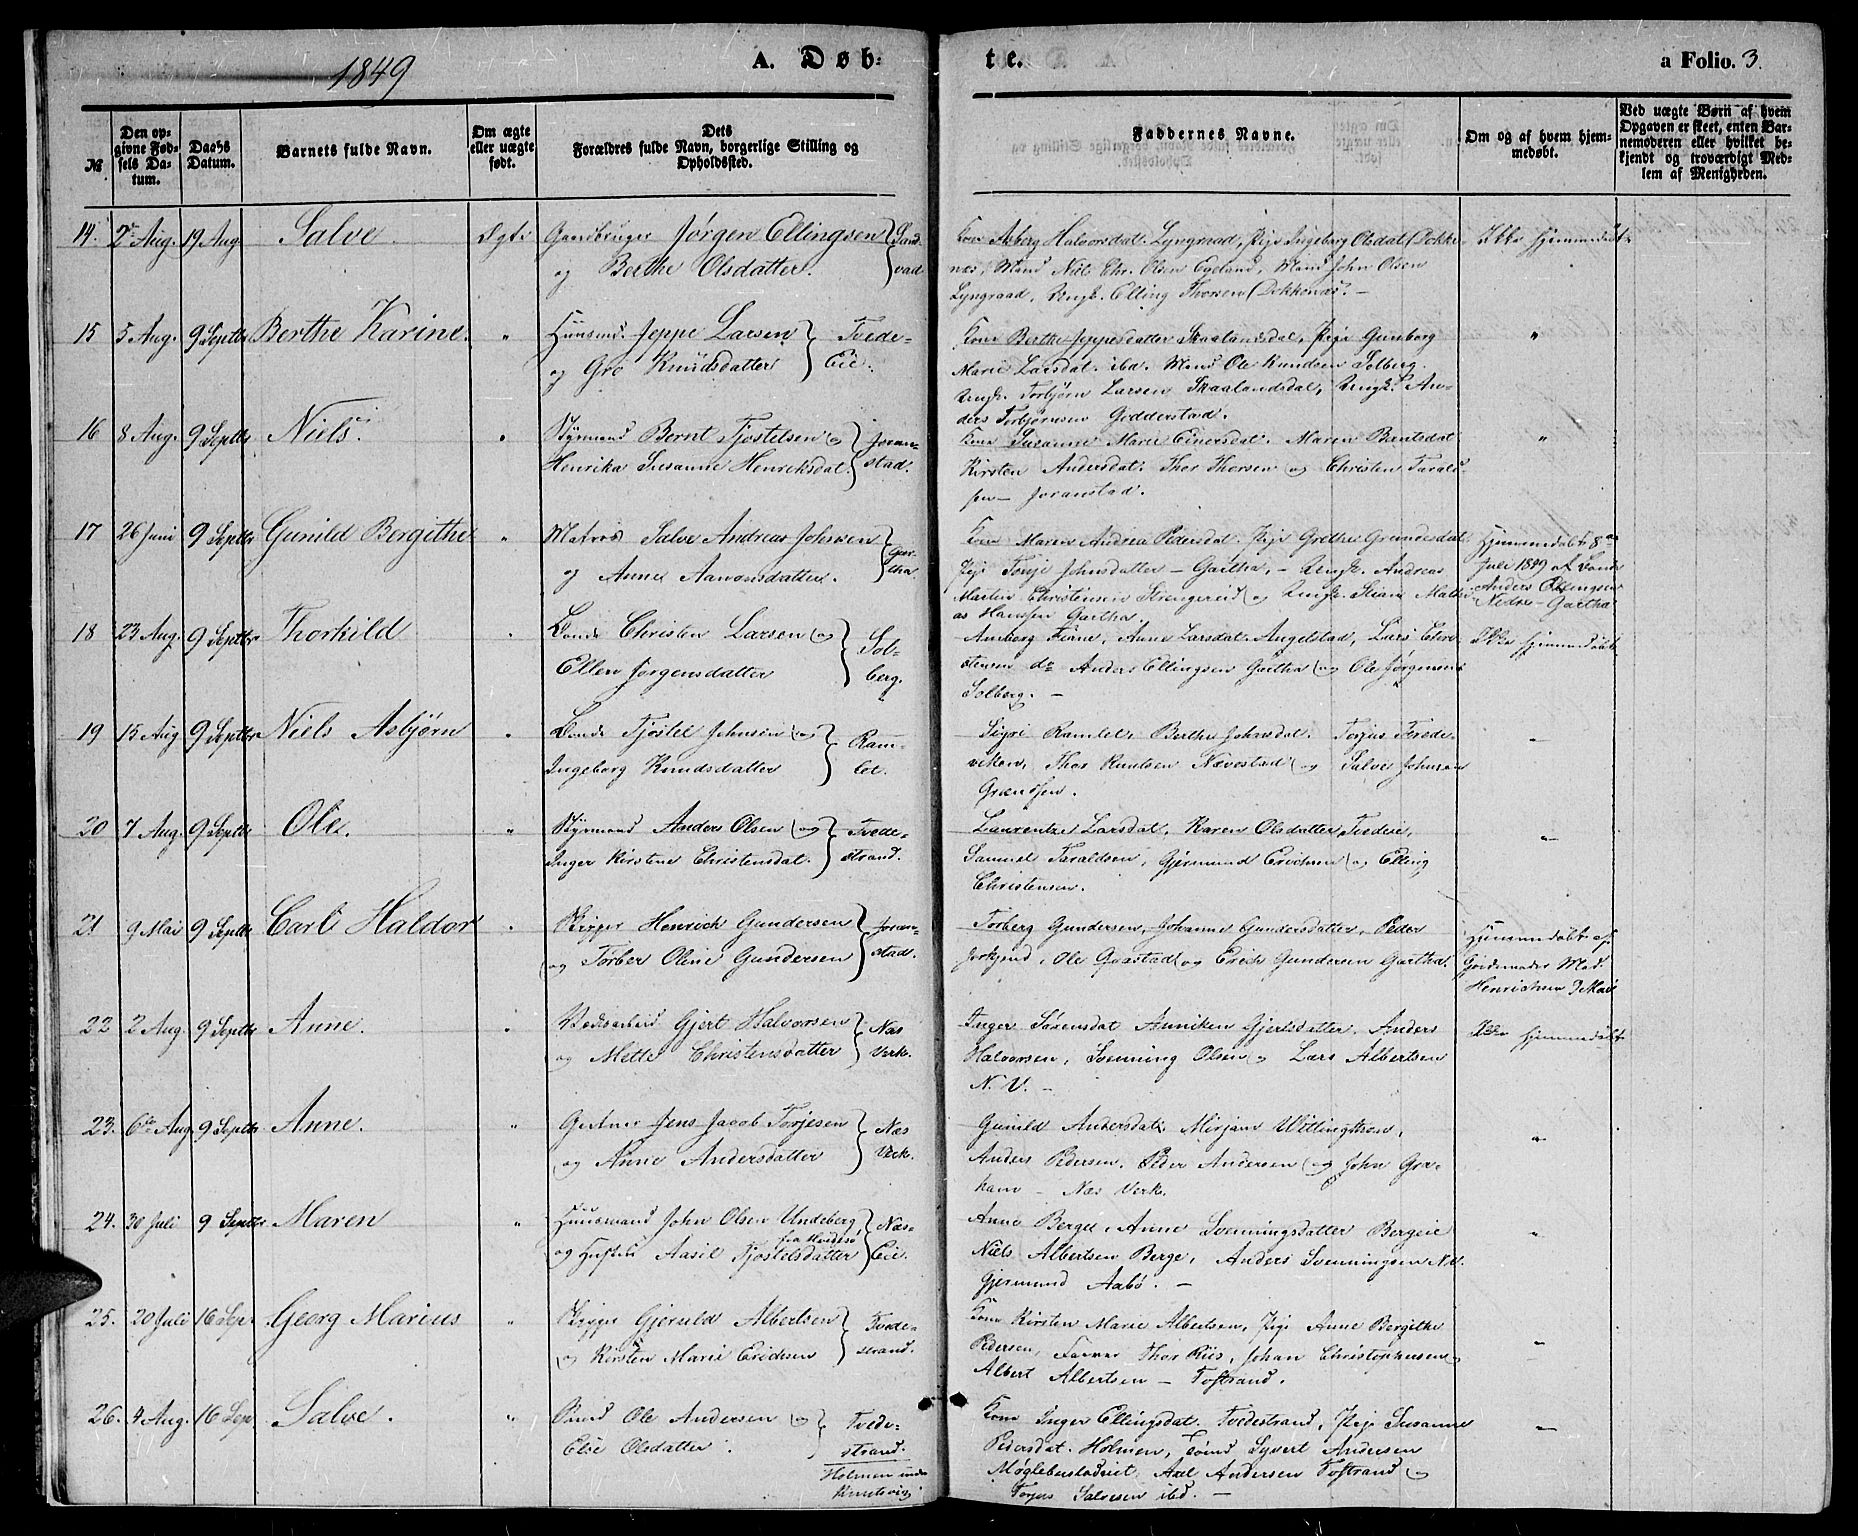 1849
A. Døb-
te.
a Folio. 3.
№
Den op-
givne Fød-
sels Da-
tum.
Daabs
Datum.
Barnets fulde Navn.
Om ægte
eller uægte
født.
Dets
Forældres fulde Navn, borgerlige Stilling og
Opholdssted.
Faddernes Navne.
Om og af hvem hjem-
medøbt.
Ved uægte Børn af hvem
Opgaven er skeet, enten Bar-
nemoderen eller hvilket be-
kjendt og troværdigt Med-
lem af Menigheden.
14. 2 Aug. 19 Aug. Salve. Ægte Gaardbruger Jørgen Ellingsen Sand-
og Berthe Olsdatter. vad
Kone Asberg Halvorsdat. Lyngraad, Pige Ingeborg Olsdat. Dokke-
næs, Mand Niels Chr. Olsen Egeland, Mand John Olsen
Lyngraad, Ungk. Elling Thorsen Dokkenæs. —
Ikke hjemmedøbt
15 5 Aug. 9 Septbr Berthe Karine. " Huusmd. Jeppe Larsen Tvede-
og Gro Knudsdatter Eie.
Kone Berthe Jeppesdatter Skaalandsdal, Pige Gunborg
Marie Larsdat. ibd. Mand Ole Knudsen Solberg.
Ungk. Torbjørn Larsen Skaalandsdal, Ungk. An-
ders Torbjørnsen Godderstad.
"
16 8 Aug. 9 Septbr Niels. " Styrmand Bernt Tjostelsen og Joran-
Henrika Susanne Henriksdat. stad.
Kone Susanne Marie Einersdat. Maren Berntsdat
Kirsten Andersdat. Thor Thorsen og Christen Tarald-
sen — Joranstad.
"
17 26 Juni 9 Septbr Gunild Bergithe " Matros Salve Andreas Johnsen Gar-
og Anne Aanonsdatter. tha
Kone Maren Andrea Pedersdat. Pige Grethe Gundersdat
Pige Tonje Johnsdatter — Gartha, — Ungk. Andreas
Martin Christensen Strengereid og Ungk. Stian Mathi-
as Hansen Gartha.
Hjemmedøbt 8de
Juli 1849 af Bonde
Anders Ellingsen
Nedre-Gartha
18 23 Aug. 9 Septbr Thorkild " Bonde Christen Larsen og Sol-
Ellen Jørgensdatter berg.
Anborg Fiane, Anne Larsdat. Angelstad, Lars Chri-
stensen do Anders Ellingsen Gartha og Ole Jørgensen
Solberg. —
Ikke hjemmedøbt
19 15 Aug 9 Septbr Niels Asbjørn " Bonde Tjostel Johnsen og Ram-
Ingeborg Knudsdatter let.
Sigri Ramlet, Berthe Johnsdat. Torjus Tvede-
viken, Thor Knutsen Nævestad og Salve Johnsen
Grændsen.
"
20 7 Aug. 9 Septbr Ole. " Styrmand Anders Olsen og Tvede-
Inger Kirstine Christensdat. strand.
Laurentze Larsdat, Karen Olsdatter Tvedeie,
Samuel Taraldsen, Gjermund Erichsen og Elling
Christensen.
"
21 9 Mai 9 Septbr Carl Haldor " Skipper Henrich Gundersen Joran-
og Torber Oline Gundersen stad.
Torberg Gundersen, Johanne Gundersdatter, Peder
Ole Qvastad og Erich Gundersen Gartha.
Hjemmedøbt af
Gjordemoder Mad.
Henrichsen 9 Mai
22 2 Aug. 9 Septbr Anne. " Værksarbeid. Gjert Halvorsen Næs
og Mette Christensdatter Verk.
Inger Sørensdat Anniken Gjertsdatter, Anders
Halvorsen, Svenning Olsen og Lars Albertsen
N. V. —
Ikke hjemmedøbt
23. 6te Aug. 9 Septbr Anne. " Gartner Jens Jacob Torjesen Næs
og Anne Andersdatter Verk.
Gunild Andersdat. Mirjam Willingthson,
Anders Pedersen. Peder Andersen og John Gra-
ham — Næs Verk.
"
24. 30 Juli 9 Septbr Maren " Huusmand John Olsen Undeberg, Næs-
fra Hvideso
og Hustru Aasil Tjostelsdatter Eie.
Anne Berge, Anne Svenningsdatter Bergeie
Niels Albertsen Berge, Anders Svenningsen N.V.
Gjermund Aabø. —
"
25. 20 Juli 16 Sept Georg Marius " Skipper Gjeruld Albertsen Tvede-
og Kirsten Marie Erichsen strand.
Kone Kirsten Marie Albertsen, Pige Anne Bergithe
Pedersen, Farver Thor Riis, Johan Christophersen og
Albert Albertsen — Tvstrand.
"
26. 4 Aug. 16 Sept Salve. " Ole Andersen og Tvede-
Else Olsdatter. strand.
Holmen under
Knutsvig
Kone Inger Ellingsdat. Tvedestrand, Pige Susanne
Pedersdat. Holmen, Sømd Syvert Andersen
Møglebustadeiet, Axel Andersen Tvstrand og
Torjus Salvesen ibd. —
—